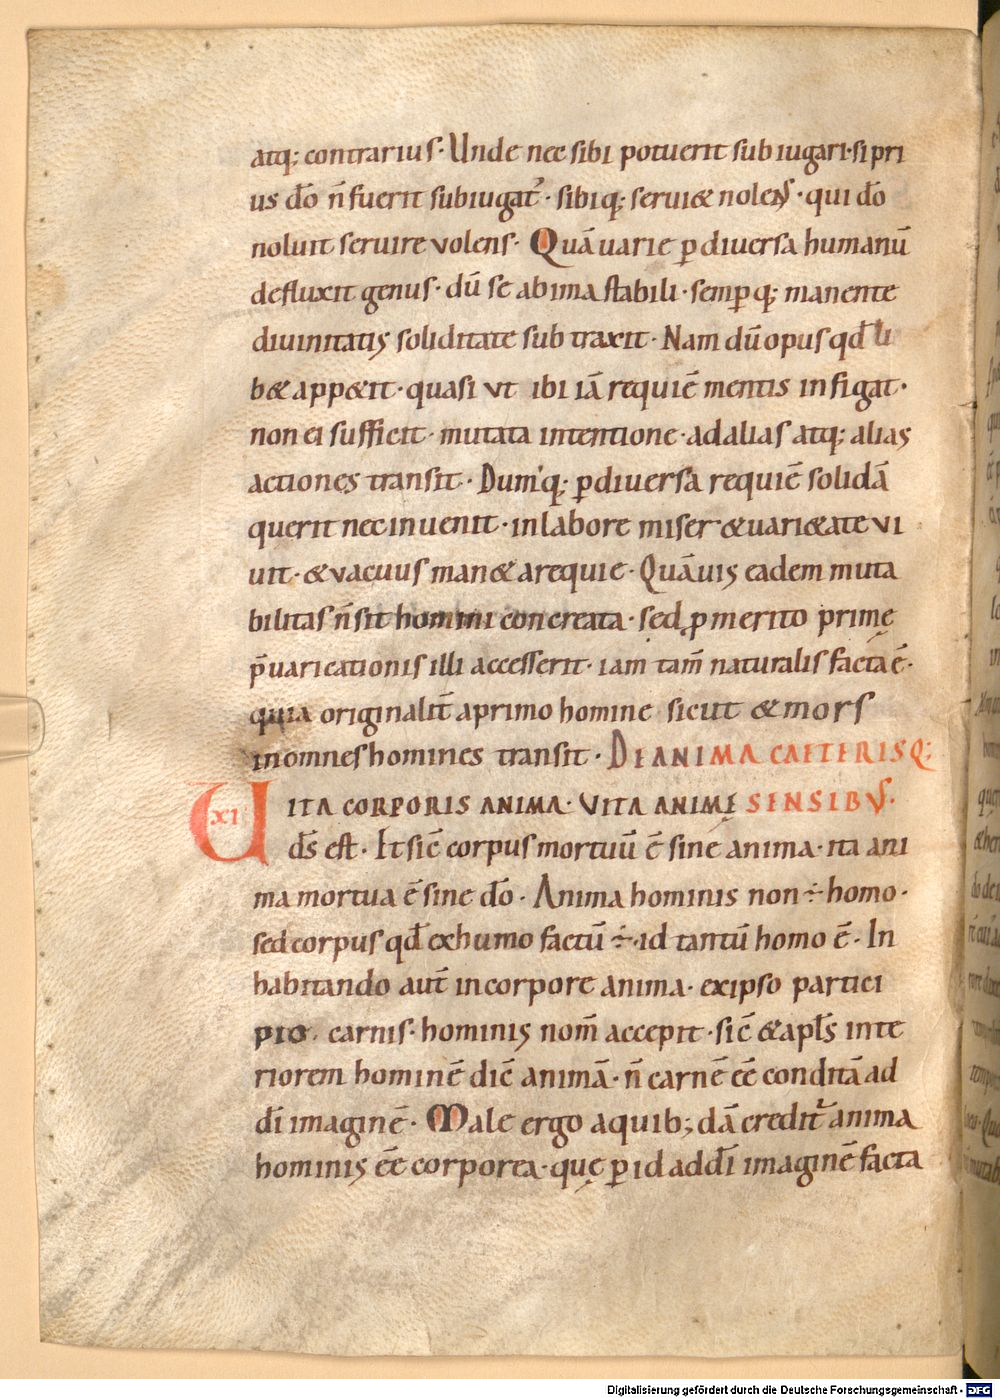 atq; contrarius· Unde nec sibi potuerit subiugari· si pri
us dō n̄ fuerit subiugatʼ· sibiq; serui& nolens· qui dō
noluit seruire volens· Quā uarie ꝑ diuersa humanū
defluxit genus· dū se ab ima stabili· semꝑq; manente
diuinitatis soliditate subtraxit· Nam dū opus qđ li
b& app&it· quasi vt ibi iā requiē mentis infigat·
non ei sufficit· mutata intentione· ad alias atq; alias
actiones transit· Dumq; ꝑ diuersa requiē solidā
querit nec inuenit· in labore miser & uari&ate vi
uit· & vacuus man& a requie· Quāuis eadem muta
bilitas n̄ sit homini concreata· sed ꝓ merito primę
p̄uaricationis illi accesserit· iam tam̄ naturalis facta ē·
quia originalit̄ a primo homine sicut & mors
in omnes homines transit· DE ANIMA CAETERISQ;
XI UITA CORPORIS ANIMA· VITA ANIMĘ SENSIBVS·
d̄s est· Et sic̄ corpus mortuū ē sine anima· ita ani
ma mortua ē sine dō· Anima hominis non ÷ homo·
sed corpus qđ ex humo factū ÷· id tantū homo ē· In
habitando aut̄ in corpore anima· ex ipso partici
pio· carnis· hominis nom̄ accepit· sic̄ & apl̄s inte
riorem hominē dic̄ animā· n̄ carnē ēē conditā ad
dī imaginē· Male ergo a quib; dā creditʼ anima
hominis ēē corporea· quę ꝑ id ad dī imaginē facta